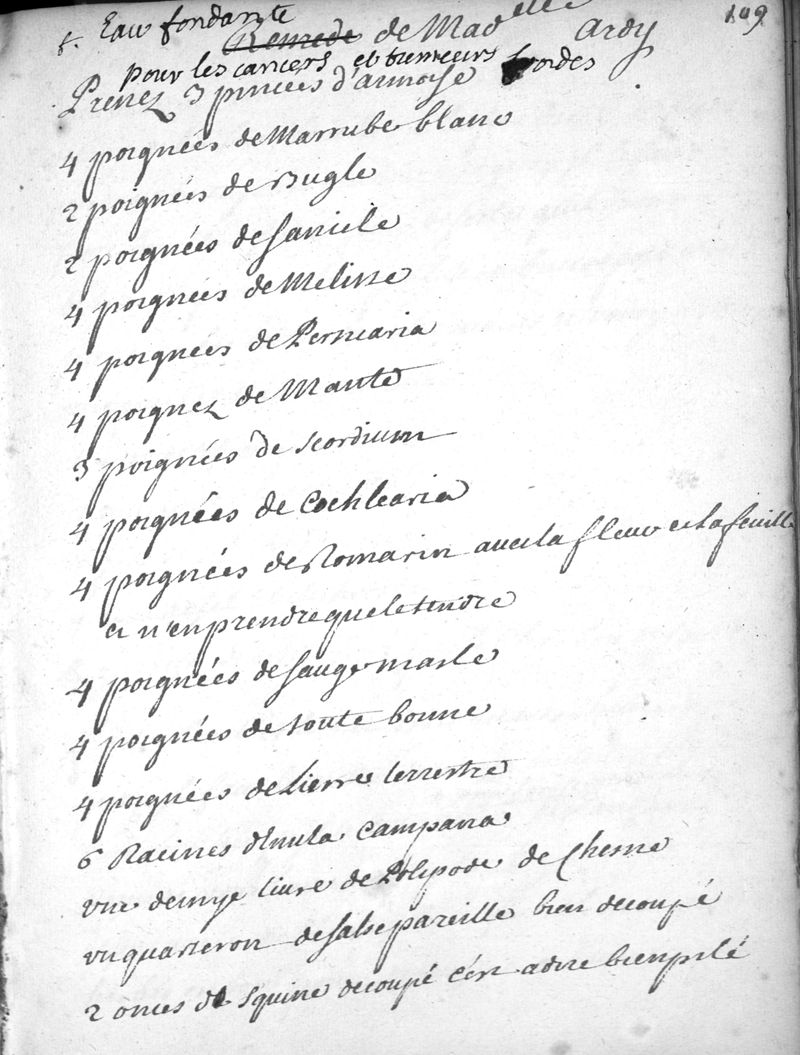 109
f. Eau fondante
Remede de Mad elle Ardy
pour les cancers et tumeurs froides
Prenez 3 pincées d'armoise
4 poignées de Marrube blanc
2 poignées de Bugle
2 poignées de sanicle
4 poignées de Melisse
4 poignées de Persicaria
4 poignez de Mante
3 poignées de scordium
4 poignées de Cochlearia
4 poignées de Romarin avec la fleur et la feuille
et n'en prendre que le tendre
4 poignées de sauge masle
4 poignées de toute bonne
4 poignées de lierre terrestre
6 Racines d'Enula Campana
une demye livre de Polipode de Chesne
un quarteron de salsepareille bien decoupé
2 onces de squine decoupé c'est a dire bien pilé